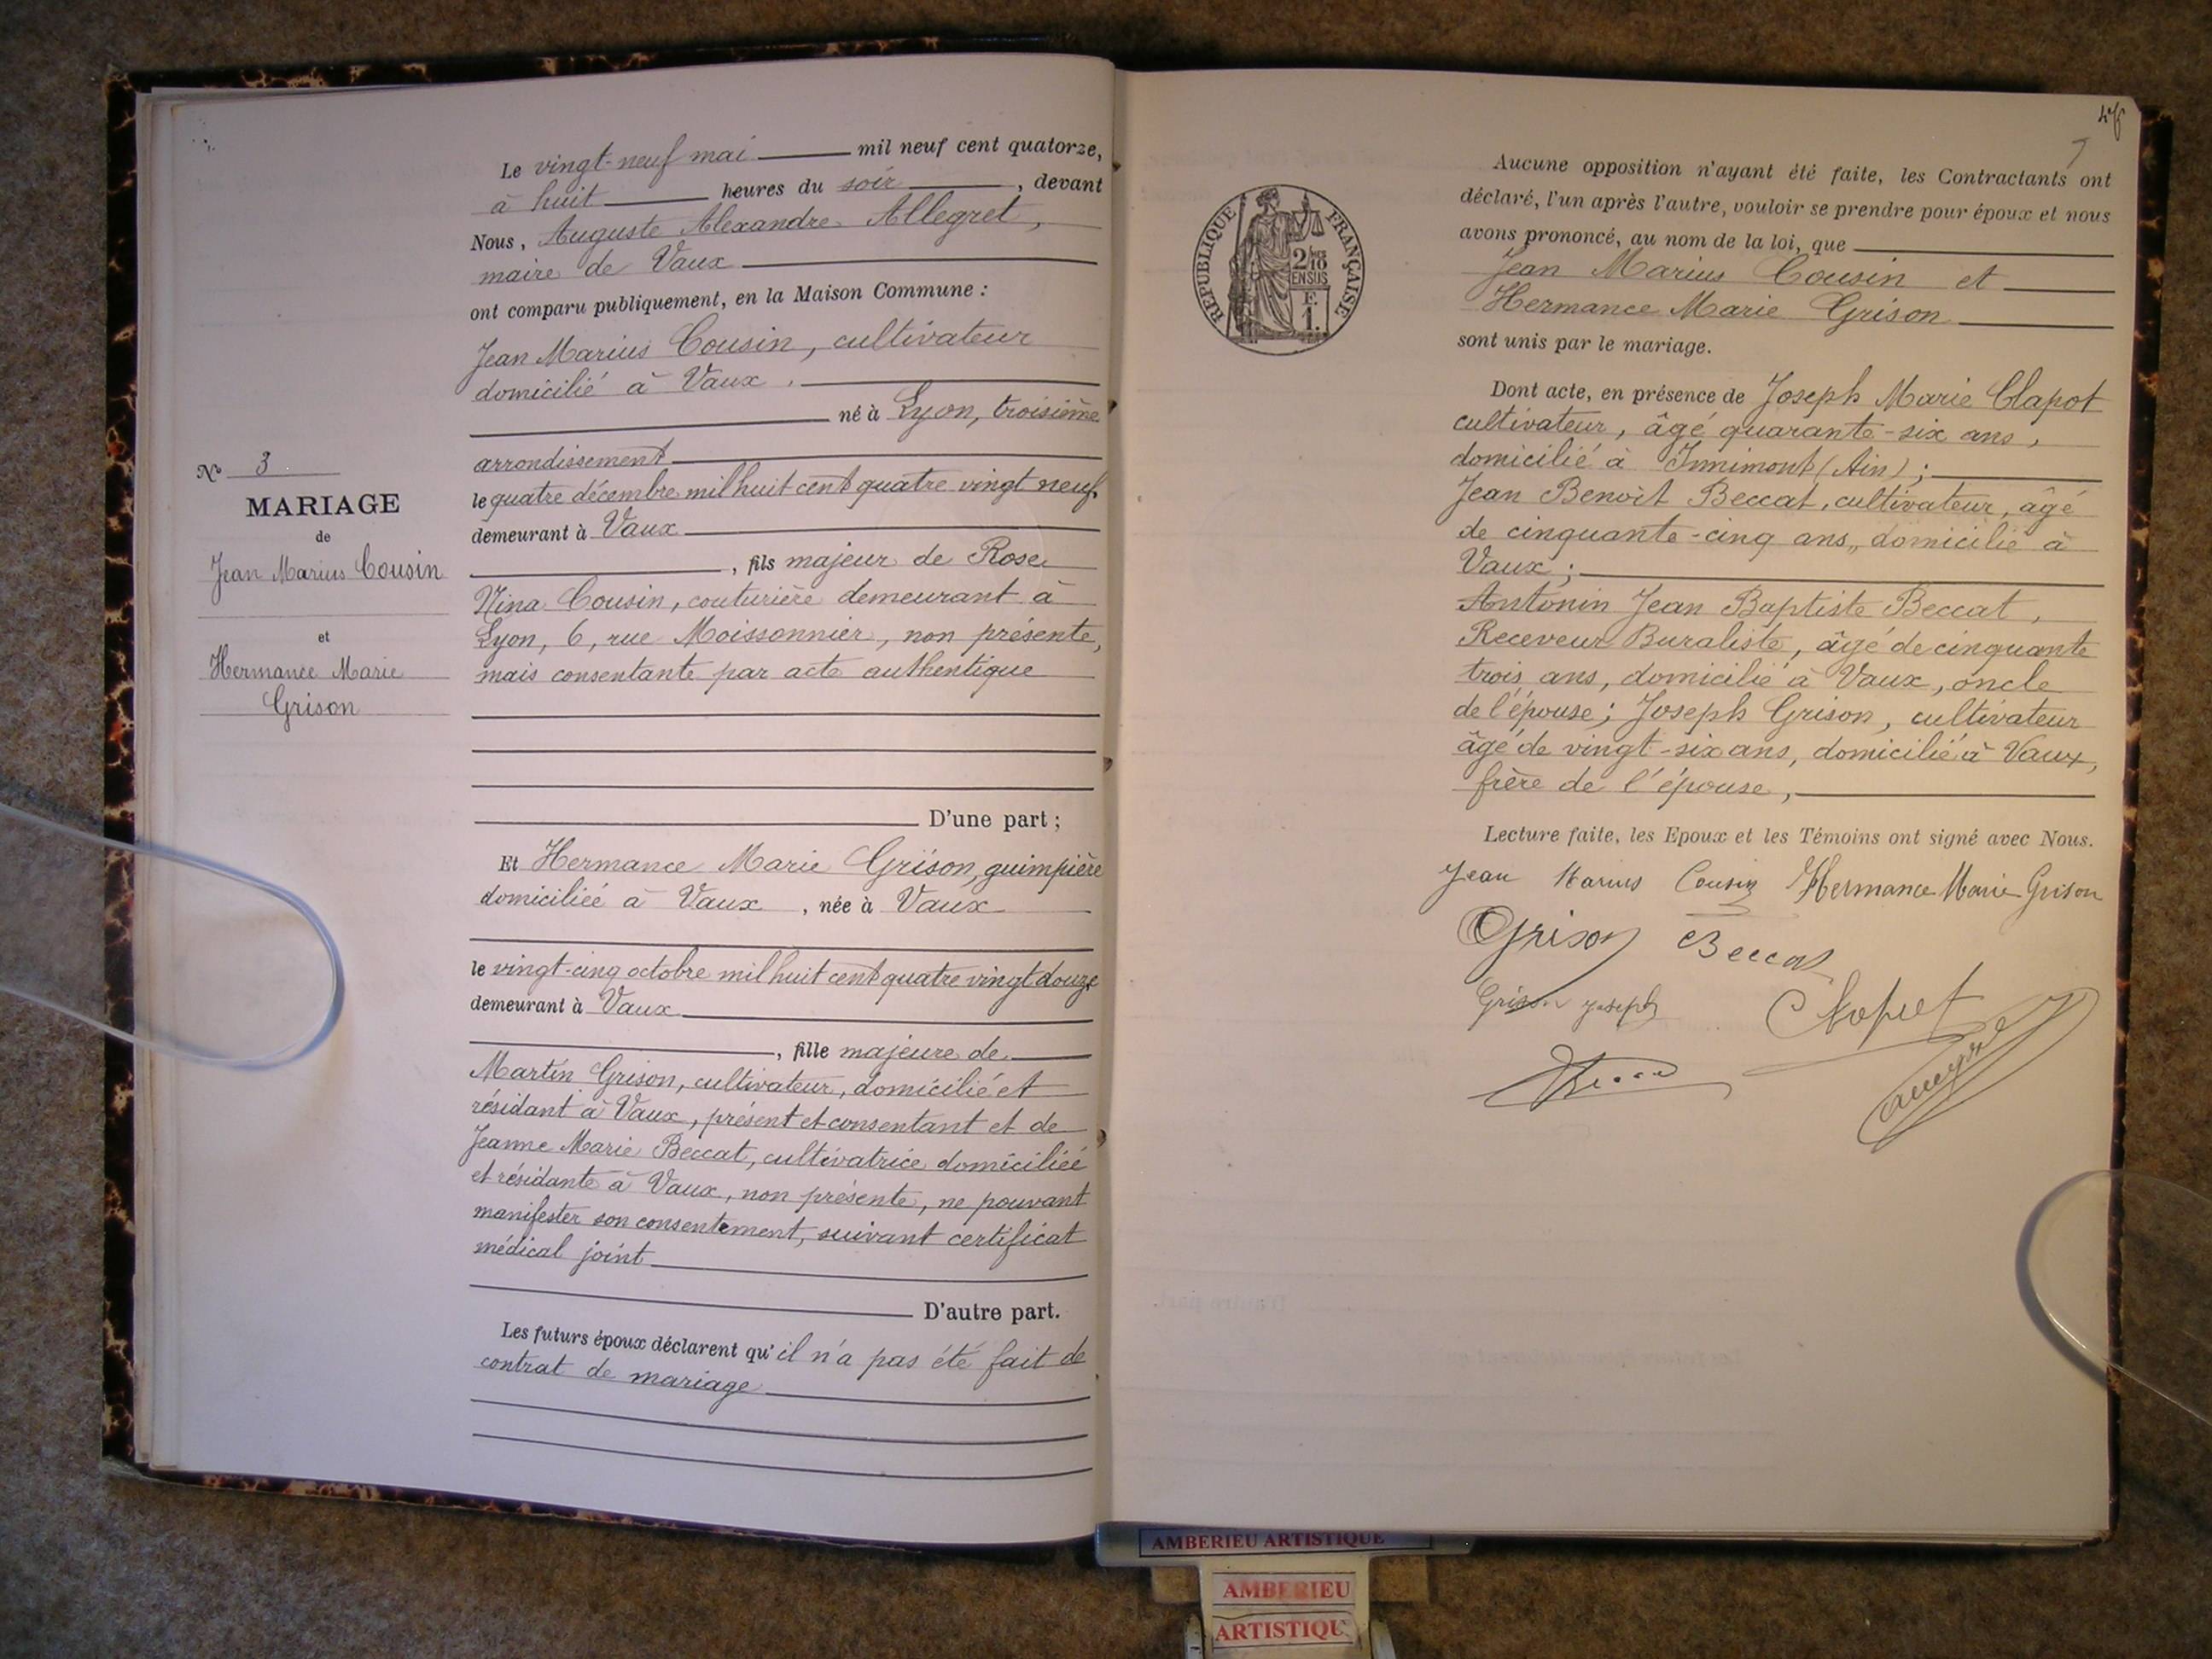 N° 3
MARIAGE
de
Jean Marius Cousin
et
Hermance Marie
Grison
Le vingt-neuf mai mil neuf cent quatorze,
à huit heures du soir, devant
Nous, Auguste Alexandre Allegret,
maire de Vaux
ont comparu publiquement, en la Maison Commune :
Jean Marius Cousin, cultivateur
domicilié à Vaux,
né à Lyon, troisième
arrondissement
le quatre décembre mil huit cent quatre vingt neuf
demeurant à Vaux
, fils majeur de Rose
Nina Cousin, couturière demeurant à
Lyon, 6, rue Moissonnier, non présente,
mais consentante par acte authentique
D'une part ;
Et Hermance Marie Grison, guimpière
domiciliée à Vaux, née à Vaux
le vingt-cinq octobre mil huit cent quatre vingt douze
demeurant à Vaux
, fille majeure de
Martin Grison, cultivateur, domicilié et
résidant à Vaux, présent et consentant et de
Jeanne Marie Beccat, cultivatrice domiciliée
et résidante à Vaux, non présente, ne pouvant
manifester son consentement, suivant certificat
médical joint
D'autre part.
Les futurs époux déclarent qu'il n'a pas été fait de
contrat de mariage
RÉPUBLIQUE FRANÇAISE
2/10
EN SUS
F.
1.
Aucune opposition n'ayant été faite, les Contractants ont
déclaré, l'un après l'autre, vouloir se prendre pour époux et nous
avons prononcé, au nom de la loi, que
Jean Marius Cousin et
Hermance Marie Grison
sont unis par le mariage.
Dont acte, en présence de Joseph Marie Clapot
cultivateur, âgé quarante-six ans,
domicilié à Innimont (Ain) ;
Jean Benoît Beccat, cultivateur, âgé
de cinquante-cinq ans, domicilié à
Vaux ;
Antonin Jean Baptiste Beccat,
Receveur Buraliste, âgé de cinquante
trois ans, domicilié à Vaux, oncle
de l'épouse ; Joseph Grison, cultivateur
âgé de vingt-six ans, domicilié à Vaux,
frère de l'épouse,
Lecture faite, les Epoux et les Témoins ont signé avec Nous.
Jean Marius Cousin Hermance Marie Grison
Grison Beccat
Grison Joseph Clapot
AMBERIEU ARTISTIQUE
AMBERIEU
ARTISTIQU